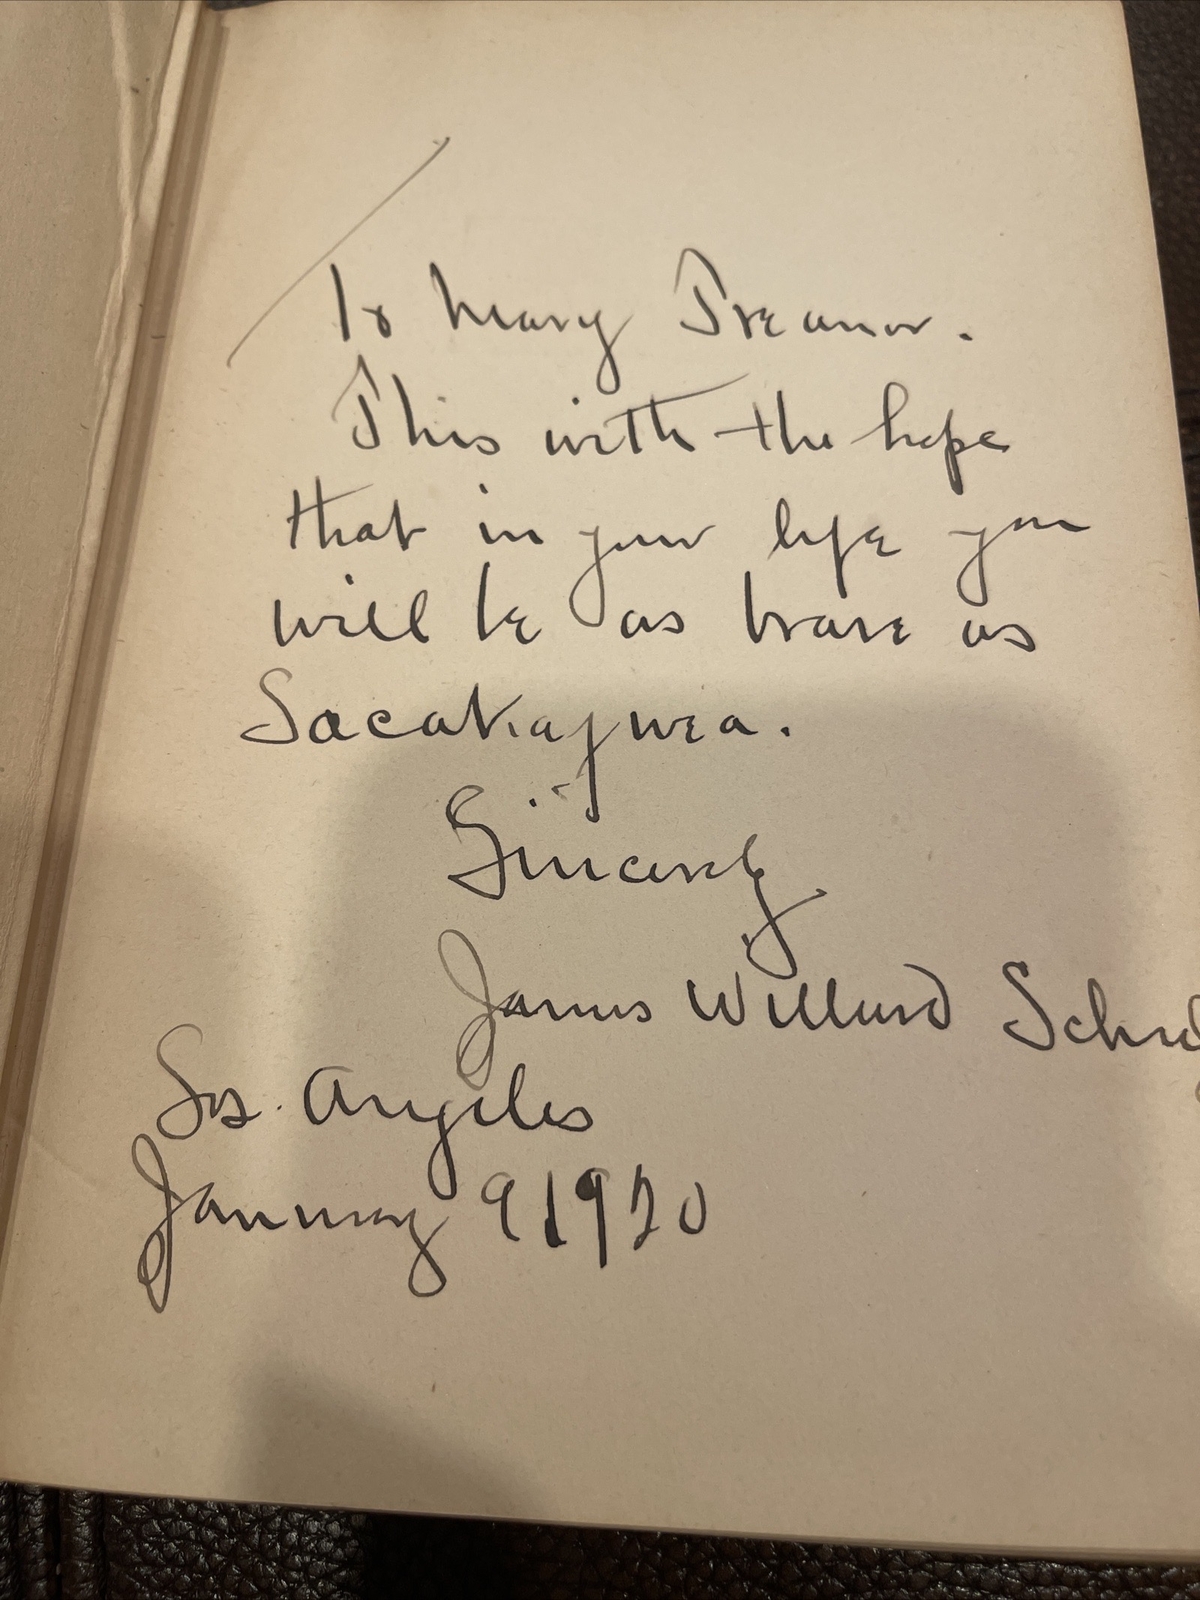 To Mary Treanor.
This with the hope
that in your life you
will be as brave as
Sacakajwea.
Sincerely
James Willard Schul
Los Angeles
January 9 1920